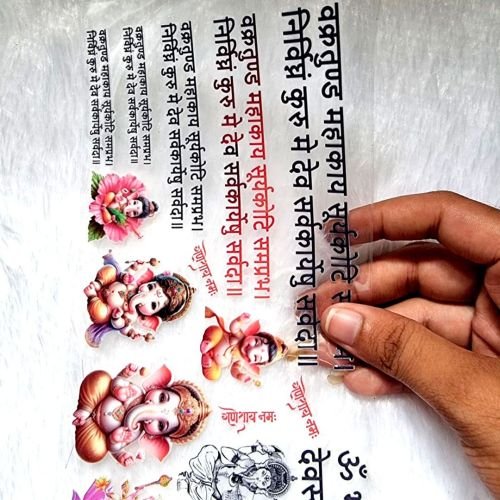 वक्रतुण्ड महाकाय सूर्यकोटि
निर्विघ्नं कुरु मे देव सर्वकार्येषु सर्वदा॥
वक्रतुण्ड महाकाय सूर्यकोटि समप्रभ।
निर्विघ्नं कुरु मे देव सर्वकार्येषु सर्वदा॥
वक्रतुण्ड महाकाय सूर्यकोटि समप्रभ।
निर्विघ्नं कुरु मे देव सर्वकार्येषु सर्वदा॥
वक्रतुण्ड महाकाय सूर्यकोटि समप्रभ।
निर्विघ्नं कुरु मे देव सर्वकार्येषु सर्वदा॥
वक्रतुण्ड महाकाय सूर्यकोटि समप्रभ।
निर्विघ्नं कुरु मे देव सर्वकार्येषु सर्वदा॥
गणेशाय नमः
गणेशाय नमः
गणेशाय नमः
ॐ